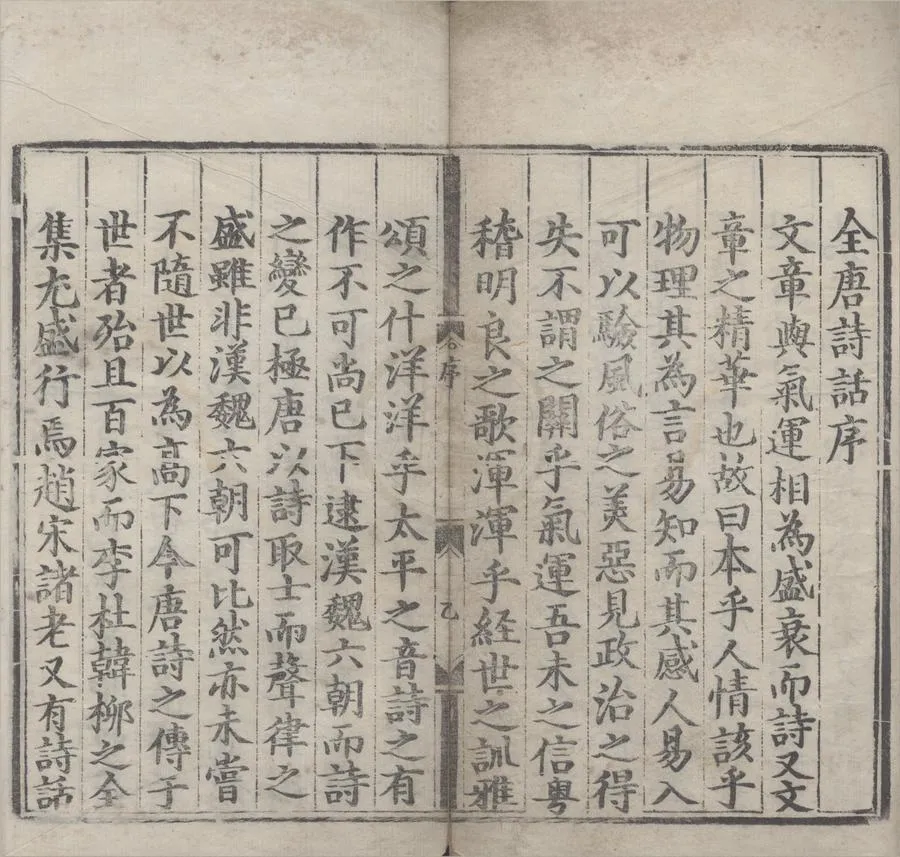 全唐詩話序
文章與氣運相為盛衰而詩又文
章之精華也故曰本乎人情該乎
物理其為言易知而其感人易入
可以驗風俗之美惡見政治之得
失不謂之關乎氣運吾未之信粵
稽明良之歌渾渾乎經世之訓雅
序
乙
頌之什洋洋乎太平之音詩之有
作不可尚已下逮漢魏六朝而詩
之變已極唐以詩取士而聲律之
盛雖非漢魏六朝可比然亦未嘗
不隨世以為高下今唐詩之傳于
世者殆且百家而李杜韓柳之全
集尤盛行焉趙宋諸老又有詩話